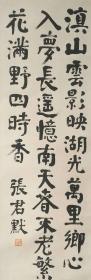 滇山雲影映湖光萬里鄉心
入夢長遥憶南天春不老繁
花滿野四時香 張君默